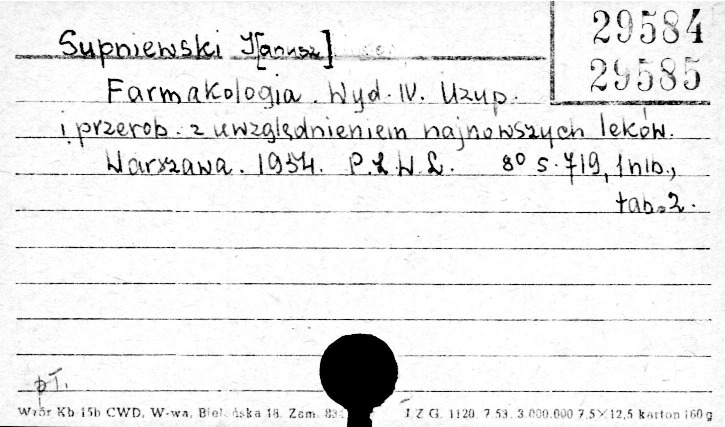 29584
29585
Supniewski J[anusz]
Farmakologia. Wyd. IV. Uzup.
i przerob. z uwzględnieniem najnowszych leków.
Warszawa. 1954. P.Z.W.L. 8° s. 719, 1 nlb.,
tab. 2.
pT.
Wzór Kb 15b CWD, W-wa, Bielańska 18. Zam. J.Z.G. 1120. 7.53. 3.000.000 7,5×12,5 karton 160 g